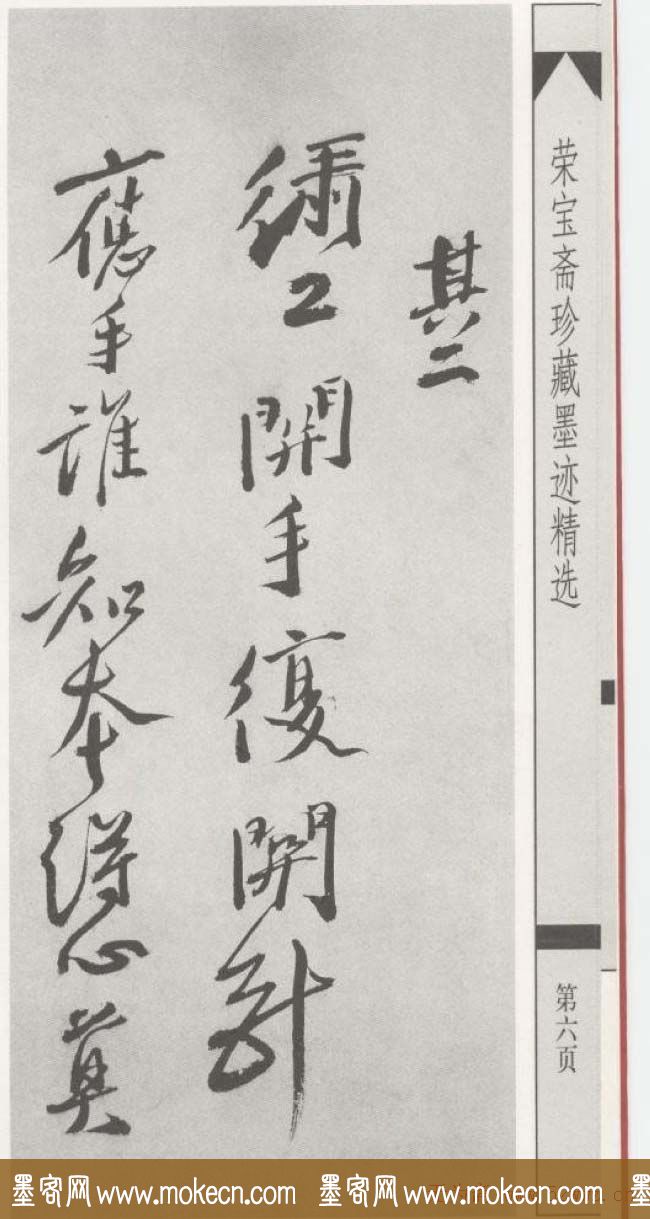 荣宝斋珍藏墨迹精选
第六页
其二
繡工開手復開針
應手誰知本得心莫
墨客网 www.mokecn.com 墨客网 www.mokecn.com 墨